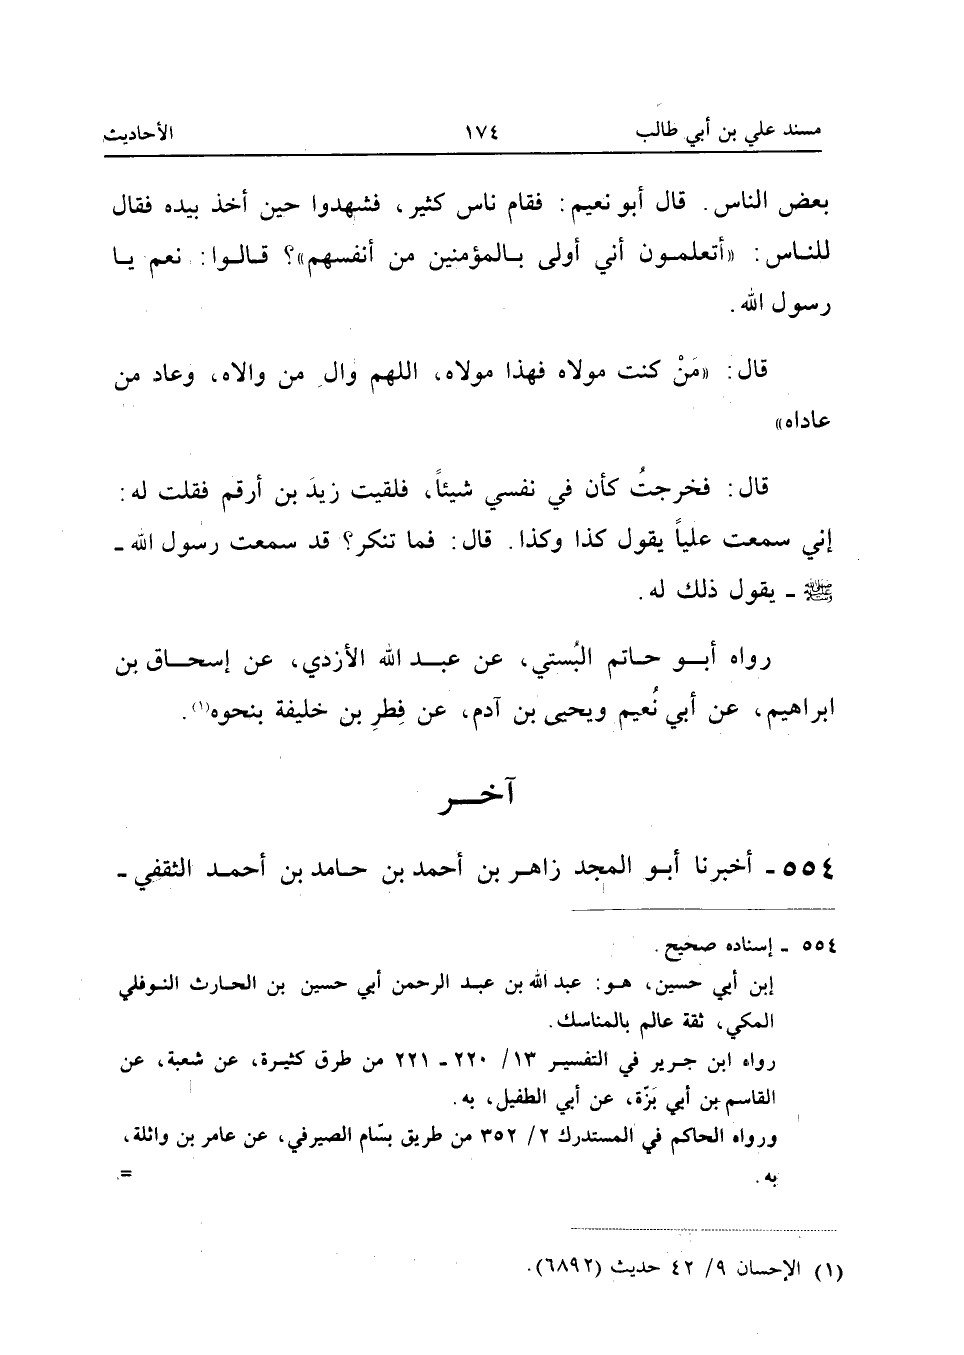 مسند علي بن أبي طالب ١٧٤ الأحاديث
بعض الناس. قال أبو نعيم: فقام ناس كثير، فشهدوا حين أخذ بيده فقال
للناس: «أتعلمون أني أولى بالمؤمنين من أنفسهم»؟ قالوا: نعم يا
رسول الله.
قال: «مَنْ كنت مولاه فهذا مولاه، اللهم والِ من والاه، وعاد من
عاداه»
قال: فخرجتُ كأن في نفسي شيئاً، فلقيت زيدَ بن أرقم فقلت له:
إني سمعت علياً يقول كذا وكذا. قال: فما تنكر؟ قد سمعت رسول الله ـ
ﷺ ـ يقول ذلك له.
رواه أبو حاتم البُستي، عن عبد الله الأزدي، عن إسحاق بن
ابراهيم، عن أبي نُعيم ويحيى بن آدم، عن فِطرِ بن خليفة بنحوه(١).
آخر
٥٥٤ ـ أخبرنا أبو المجد زاهر بن أحمد بن حامد بن أحمد الثقفي ـ
٥٥٤ ـ إسناده صحيح.
إبن أبي حسين، هو: عبد الله بن عبد الرحمن أبي حسين بن الحارث النوفلي
المكي، ثقة عالم بالمناسك.
رواه ابن جرير في التفسير ١٣/ ٢٢٠ ـ ٢٢١ من طرق كثيرة، عن شعبة، عن
القاسم بن أبي بَزّة، عن أبي الطفيل، به.
ورواه الحاكم في المستدرك ٢/ ٣٥٢ من طريق بسّام الصيرفي، عن عامر بن واثلة،
به. =
(١) الإحسان ٩/ ٤٢ حديث (٦٨٩٢).